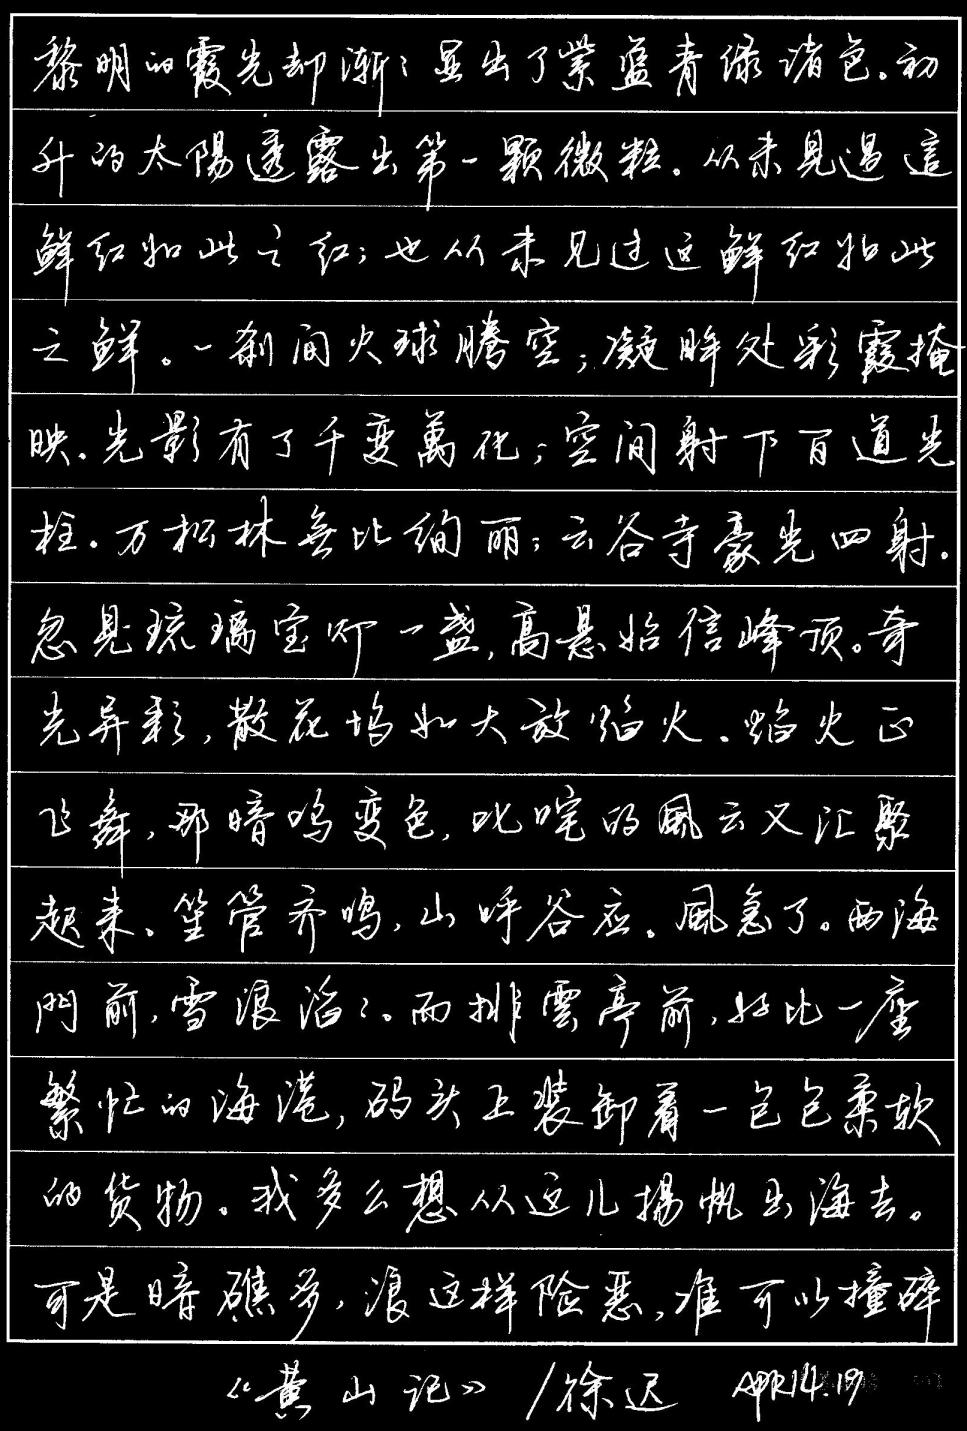 黎明的霞光却渐渐显出了紫蓝青绿诸色。初
升的太陽透露出第一颗微粒。从未見過這
鲜红如此之红;也从未见过这鲜红如此
之鲜。一刹间火球腾空;凝眸处彩霞掩
映。光影有了千变萬化;空间射下百道光
柱。万松林無比绚丽;云谷寺豪光四射。
忽見琉璃宝灯一盏,高悬始信峰顶。奇
光异彩,散花坞如大放焰火。焰火正
飞舞,那暗鸣变色,叱咤的風云又汇聚
起来。笙管齐鸣,山呼谷应。風急了。西海
門前,雪浪滔滔。而排雲亭前,好比一座
繁忙的海港,码头上装卸着一包包柔软
的货物。我多么想从这儿揚帆出海去。
可是暗礁多,浪这样险恶,准可以撞碎
《黄山记》/徐迟 APR14.19